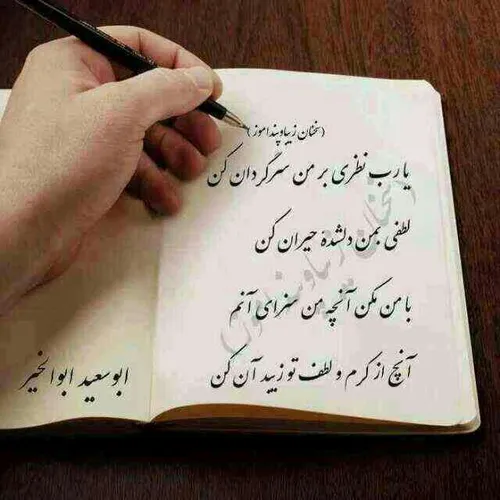 (سخنان زیبا و پندآموز)
یا رب نظری بر من سرگردان کن
لطفی بمن دلشدهٔ حیران کن
با من مکن آنچه من سزای آنم
آنچ از کرم و لطف تو زیبد آن کن
ابوسعید ابوالخیر
(سخنان زیبا و پندآموز)